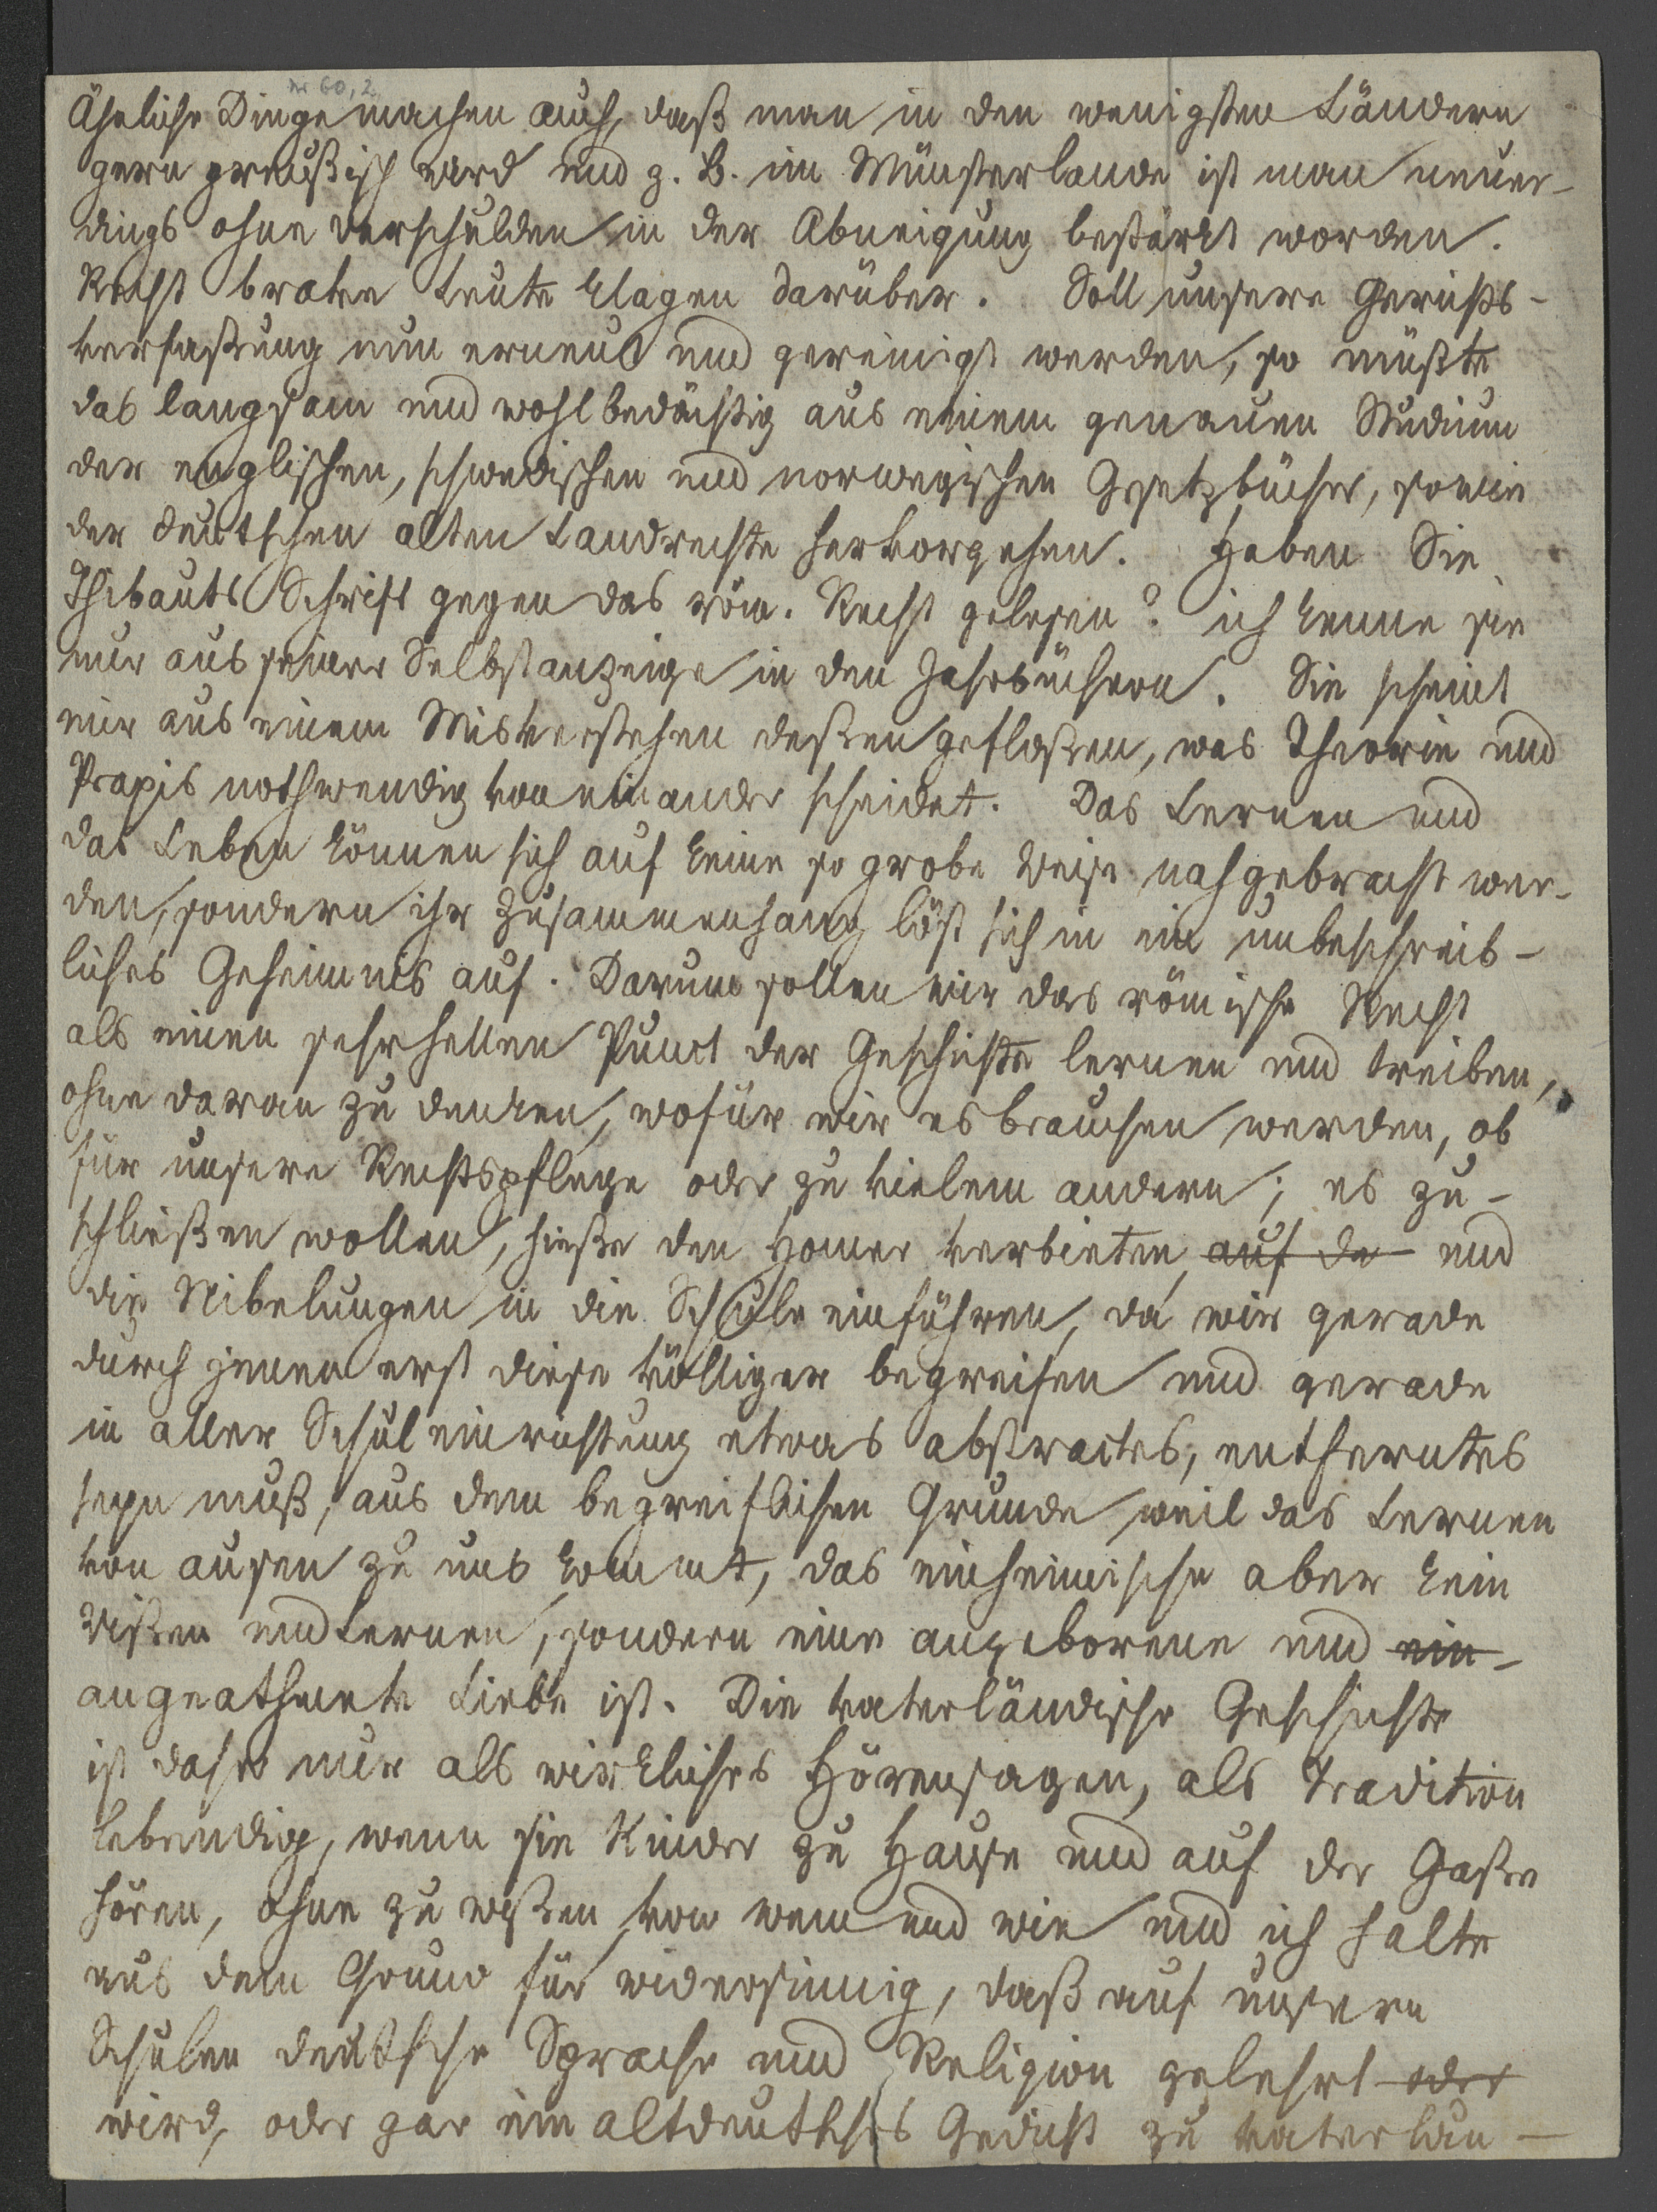 Nr 60,2
Ähnliche Dinge machen auch, daß man in den wenigsten Ländern
gern preußisch wird und z. B. im Münsterlande ist man neuer-
dings ohne Verschulden in der Abneigung bestärkt worden.
Recht brave Leute klagen darüber. Soll unsere Gerichts-
verfaßung nun erneut und gereinigt werden, so müßte
das langsam und wohlbedächtig aus einem genauen Studium
der englischen, schwedischen und norwegischen Gesetzbücher, sowie
der deutschen alten Landrechte hervorgehen. Haben Sie
Thibauts Schrift gegen das röm. Recht gelesen? ich kenne sie
nur aus seiner Selbstanzeige in den Jahrbüchern. Sie scheint
mir aus einem Misverstehen deßen gefloßen, was Theorie und
Praxis nothwendig von einander scheidet. Das Lernen und
das Leben können sich auf keine so grobe Weise nah gebracht wer-
den, sondern ihr Zusammenhang löst sich in ein unbeschreib-
liches Geheimnis auf. Darum sollen wir das römische Recht
als einen sehr hellen Punct der Geschichte lernen und treiben,
ohne daran zu denken, wofür wir es brauchen werden, ob
für unsere Rechtspflege oder zu vielem andern; es zu-
schließen wollen, hieße den Homer verbieten, auf de und
die Nibelungen in die Schule einführen, da wir gerade
durch jenen erst diese völliger begreifen und gerade
in aller Schuleinrichtung etwas abstractes, entferntes
seyn muß, aus dem begreiflichen Grunde, weil das Lernen
von ausen zu uns kommt, das einheimische aber kein
Wißen und Lernen, sondern eine angeborene und ein-
angeathmete Liebe ist. Die vaterländische Geschichte
ist daher nur als wirkliches Hörensagen, als Tradition
lebendig, wenn sie Kinder zu Hause und auf der Gaße
hören, ohne zu wißen von wem und wie und ich halte
aus dem Grund für widersinnig, daß auf unsern
Schulen deutsche Sprache und Religion gelehrt oder
wird, oder gar ein altdeutsches Gedicht zu vaterlän-